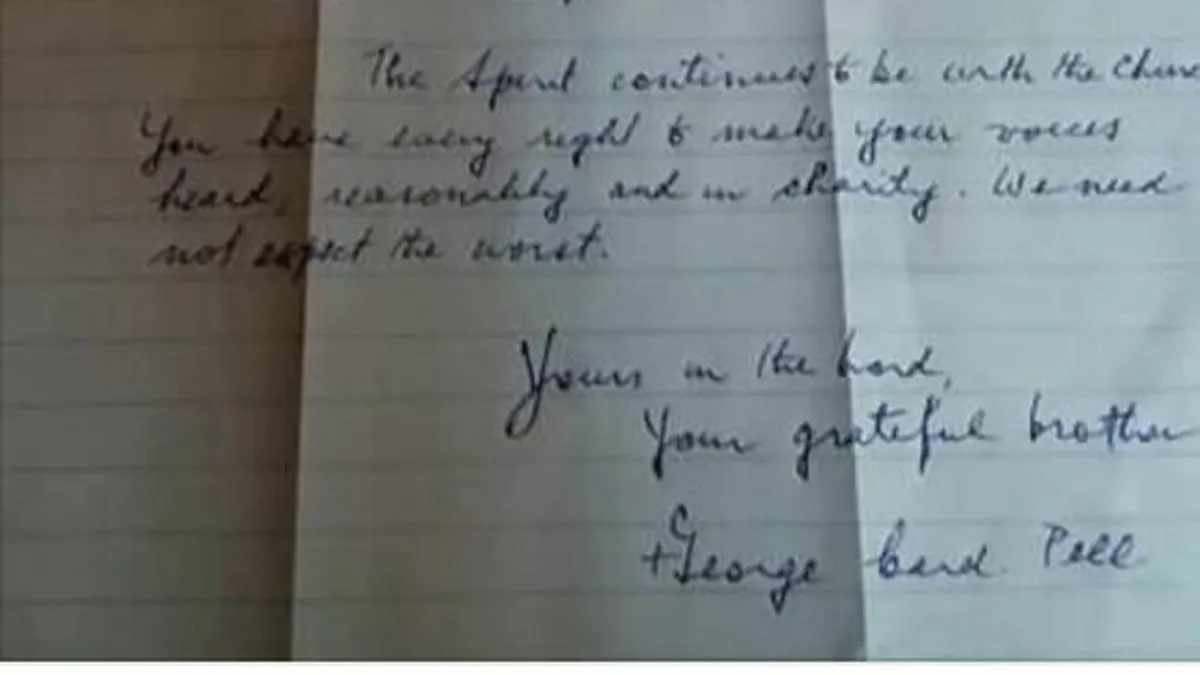 The Spirit continues to be with the Churc
You have every right to make your voices
heard, reasonably and in charity. We need
not expect the worst.
Yours in the Lord,
Your grateful brother
+George Card. Pell